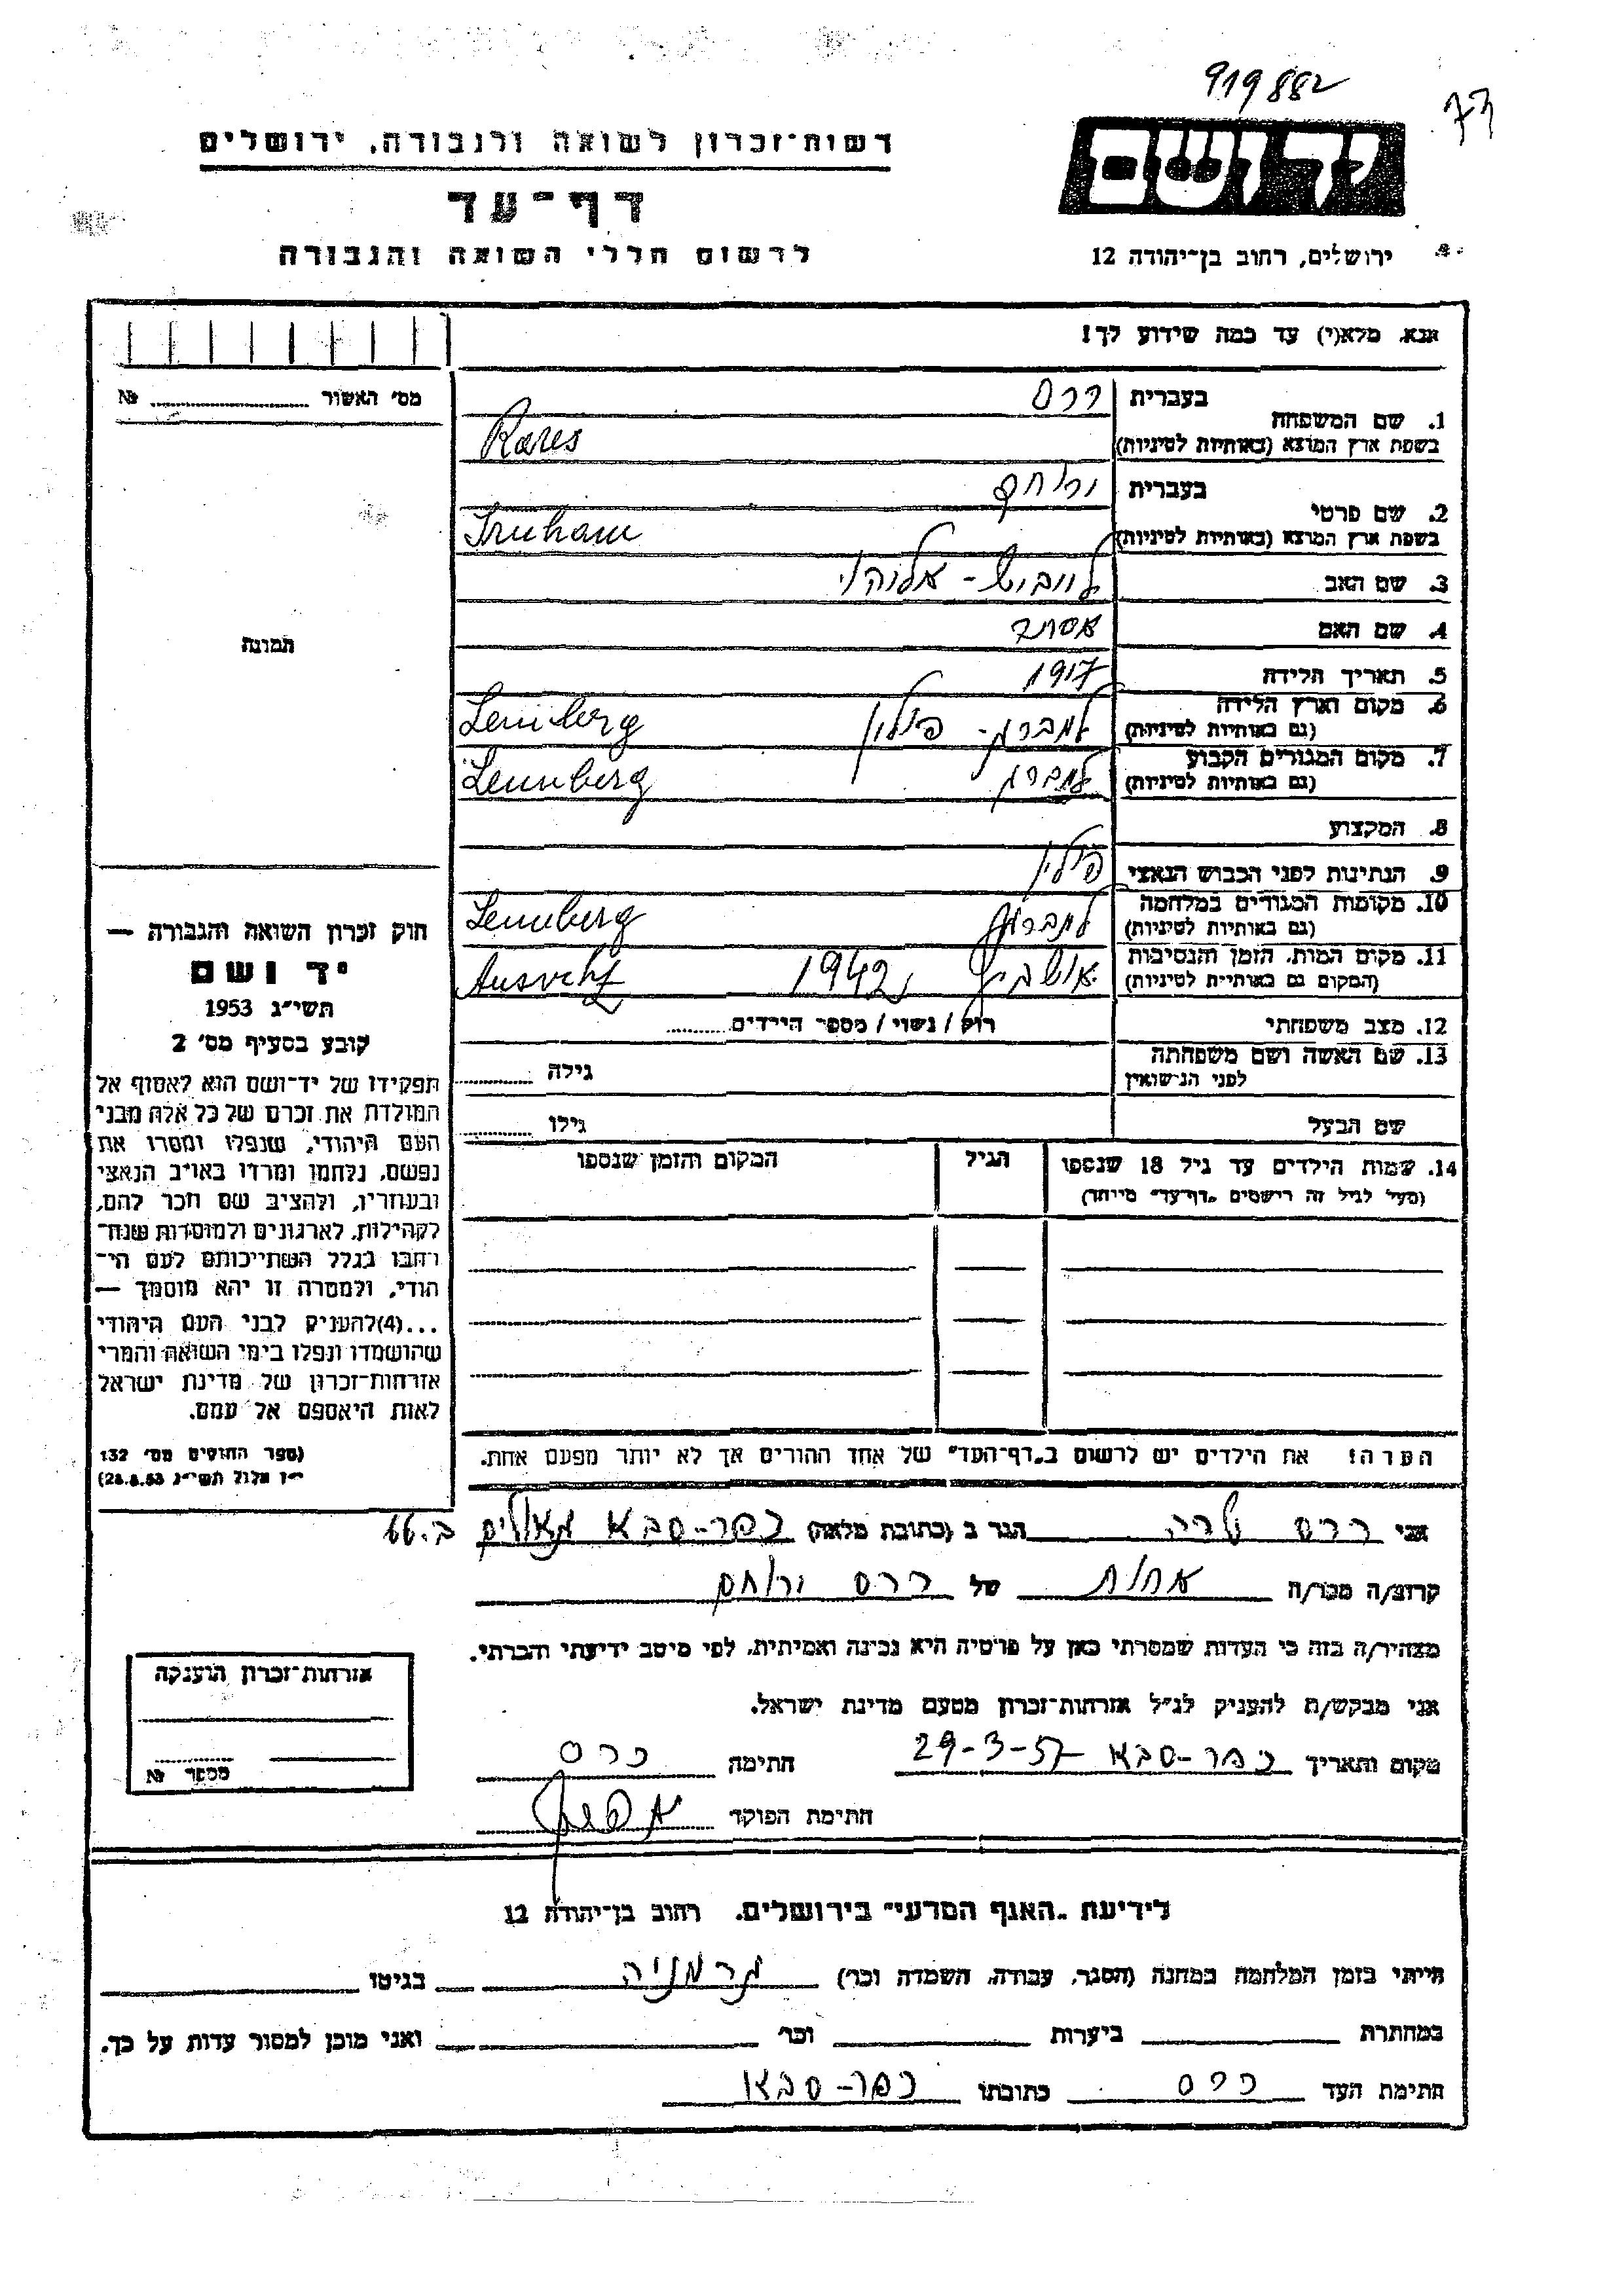 919882
רשות־זכרון לשואה ולגבורה, ירושלים
יד ושם
דף־עד
לרשום חללי השואה והגבורה
ירושלים, רחוב בן־יהודה 12
אנא, מלא(י) עד כמה שידוע לך!
מס׳ האשור № ........
1. שם המשפחה בעברית כרס
בשפת ארץ המוצא (באותיות לטיניות) Kares
2. שם פרטי בעברית ירוחם
בשפת ארץ המוצא (באותיות לטיניות) Iruham
3. שם האב לייבוש - אלוהי
4. שם האם אסתר
תמונה
5. תאריך הלידה 1917
6. מקום וארץ הלידה למברג - פולין Lemberg
(גם באותיות לטיניות)
7. מקום המגורים הקבוע למברג Lemberg
(גם באותיות לטיניות)
8. המקצוע
9. הנתינות לפני הכבוש הנאצי פולין
10. מקומות המגורים במלחמה למברג Lemberg
(גם באותיות לטיניות)
11. מקום המות, הזמן והנסיבות אושביץ 1942 Ausvitz
(המקום גם באותיות לטיניות)
12. מצב משפחתי רווק / נשוי / מספר הילדים........
13. שם האשה ושם משפחתה גילה ........
לפני הנישואין
שם הבעל גילו ........
14. שמות הילדים עד גיל 18 שנספו הגיל המקום והזמן שנספו
(מעל לגיל זה רישמים „דף־עד״ מייחד)
הערה! את הילדים יש לרשום ב„דף־העד״ של אחד ההורים אך לא יותר מפעם אחת.
חוק זכרון השואה והגבורה —
יד ושם
תשי״ג 1953
קובע בסעיף מס׳ 2
תפקידו של יד־ושם הוא לאסוף אל
המולדת את זכרם של כל אלה מבני
העם היהודי, שנפלו ומסרו את
נפשם, נלחמו ומרדו באויב הנאצי
ובעוזריו, ולהציב שם וזכר להם,
לקהילות, לארגונים ולמוסדות שנח־
רבו בגלל השתייכותם לעם הי־
הודי, ולמטרה זו יהא מוסמך —
...(4)להעניק לבני העם היהודי
שהושמדו ונפלו בימי השואה והמרי
אזרחות־זכרון של מדינת ישראל
לאות היאספם אל עמם.
(ספר החוקים מס׳ 132
י״ז אלול תשי״ג 28.8.53)
אני כרס שרה הגר ב (כתובת מלאה) כפר-סבא גאולים ב.66
קרוב/ה מכר/ה אחות של כרס ירוחם
מצהיר/ה בזה כי העדות שמסרתי כאן על פרטיה היא נכונה ואמיתית, לפי מיטב ידיעתי והכרתי.
אני מבקש/ת להעניק לנ״ל אזרחות־זכרון מטעם מדינת ישראל.
מקום ותאריך כפר-סבא 29-3-57 חתימה כרס
חתימת הפוקד
אזרחות־זכרון הוענקה
מספר №
לידיעת „האגף המדעי״ בירושלים, רחוב בן־יהודה 12
הייתי בזמן המלחמה במחנה (הסגר, עבודה, השמדה וכו׳) גרמניה בגיטו
במחתרת ביערות וכו׳ ואני מוכן למסור עדות על כך.
חתימת העד כרס כתובתו כפר-סבא